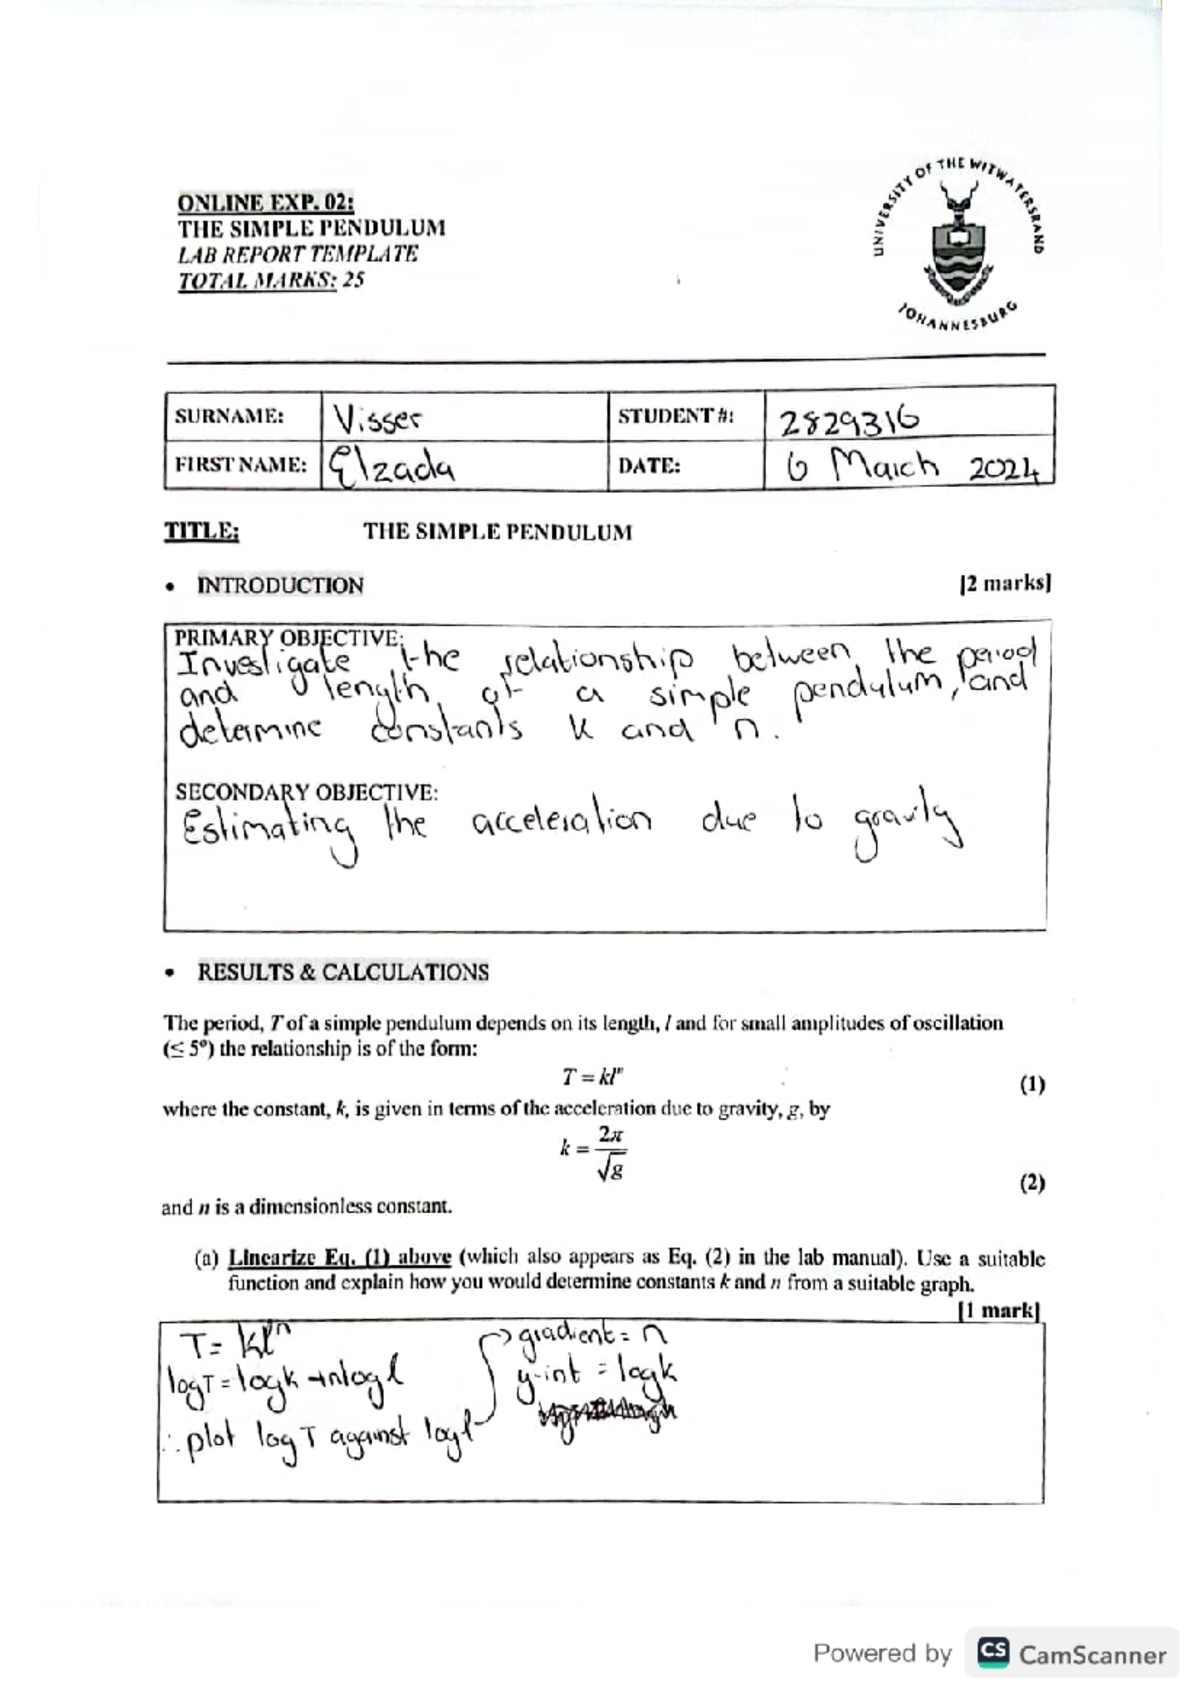 UNIVERSITY OF THE WITWATERSRAND
JOHANNESBURG
ONLINE EXP. 02:
THE SIMPLE PENDULUM
LAB REPORT TEMPLATE
TOTAL MARKS: 25
SURNAME: Visser STUDENT #: 2829316
FIRST NAME: Elzada DATE: 6 March 2024
TITLE: THE SIMPLE PENDULUM
• INTRODUCTION [2 marks]
PRIMARY OBJECTIVE:
Investigate the relationship between the period
and length of a simple pendulum, and
determine constants k and n.
SECONDARY OBJECTIVE:
Estimating the acceleration due to gravity
• RESULTS & CALCULATIONS
The period, T of a simple pendulum depends on its length, l and for small amplitudes of oscillation
(≤ 5°) the relationship is of the form:
T = klⁿ (1)
where the constant, k, is given in terms of the acceleration due to gravity, g, by
k = 2π/√g (2)
and n is a dimensionless constant.
(a) Linearize Eq. (1) above (which also appears as Eq. (2) in the lab manual). Use a suitable
function and explain how you would determine constants k and n from a suitable graph.
[1 mark]
T = klⁿ
logT = logk + nlogl
∴ plot logT against logl
gradient = n
y-int = logk
Powered by CS CamScanner